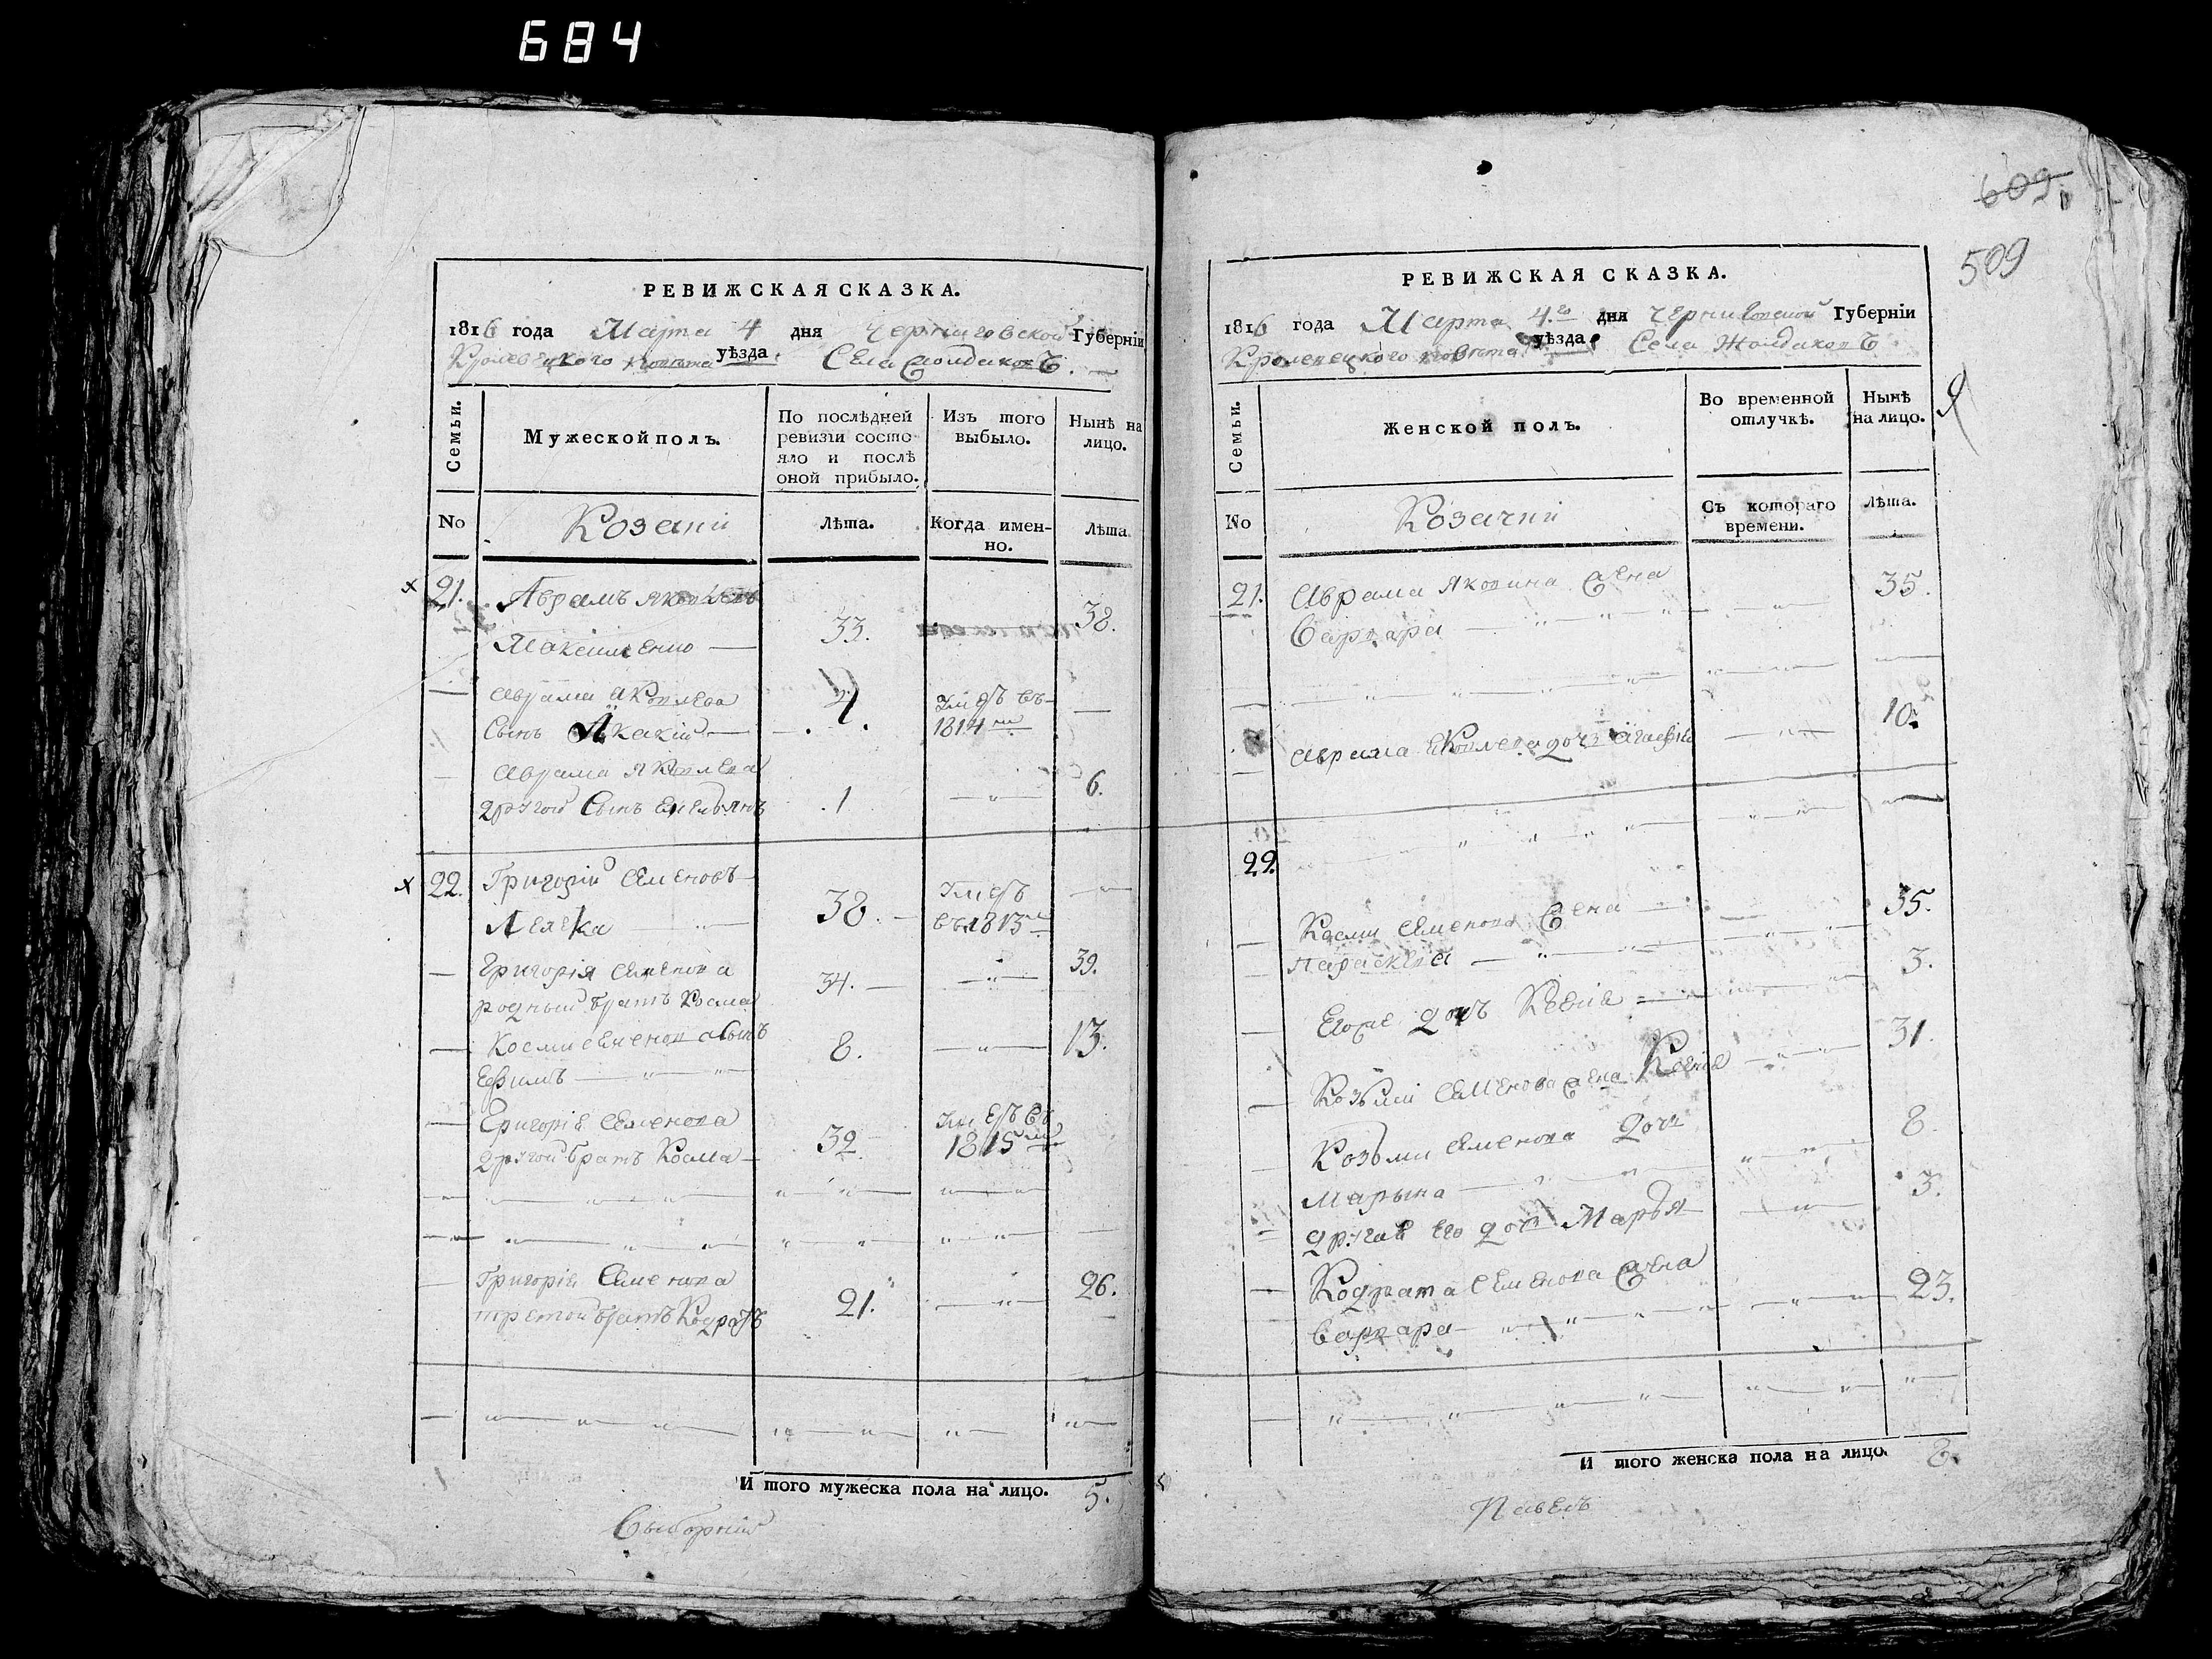 684
РЕВИЖСКАЯ СКАЗКА.
1816 года Марта 4 дня Черниговской Губерніи
Кролевецкого повета уѣзда. Села
Семьи.
Мужеской полъ.
По послѣдней ревизіи состояло и послѣ оной прибыло.
Изъ того выбыло.
Ныне на лицо.
No
Козачій
Лѣта.
Когда именно.
Лѣта
21. Аврамъ Яковлевъ
Максименко — 33. 38.
Аврама Яковлева 4 Умеръ въ
Сынъ Акакій — 1814 —
Аврама Яковлева 6.
другой Сынъ Емельянъ 1
22. Григорій Семеновъ — Умеръ
38. — въ 1813
Григорія Семенова 39.
родный братъ Косма 34. —
Косми Семенова Сынъ 8. 13.
Ефимъ
Григорія Семенова Умеръ въ
другой братъ Косма — 32 1815
Григорія Семенова 26.
третой братъ Кодратъ 21.
И того мужеска пола на лицо. 5.
Выборній
609.
509
РЕВИЖСКАЯ СКАЗКА.
1816 года Марта 4го дня Черниговской Губерніи
Кролевецкого повета уѣзда Села
Семьи.
Женской полъ.
Во временной отлучкѣ.
Нынѣ на лицо.
No
Козачій
Съ котораго времени.
Лѣта.
21. Аврама Яковлева жена 35.
Варвара
Аврама Яковлева доч 10.
22.
Косми Семенова жена — 35.
Параскева
Егоже дочъ Ксенія 3.
Козьми Семенова жена Ксенія 31.
Козьми Семенова доч 8.
Марына
другая его доч Марья 3.
Кодрата Семенова жена
Варвара 23.
И того женска пола на лицо. 8.
Павелъ